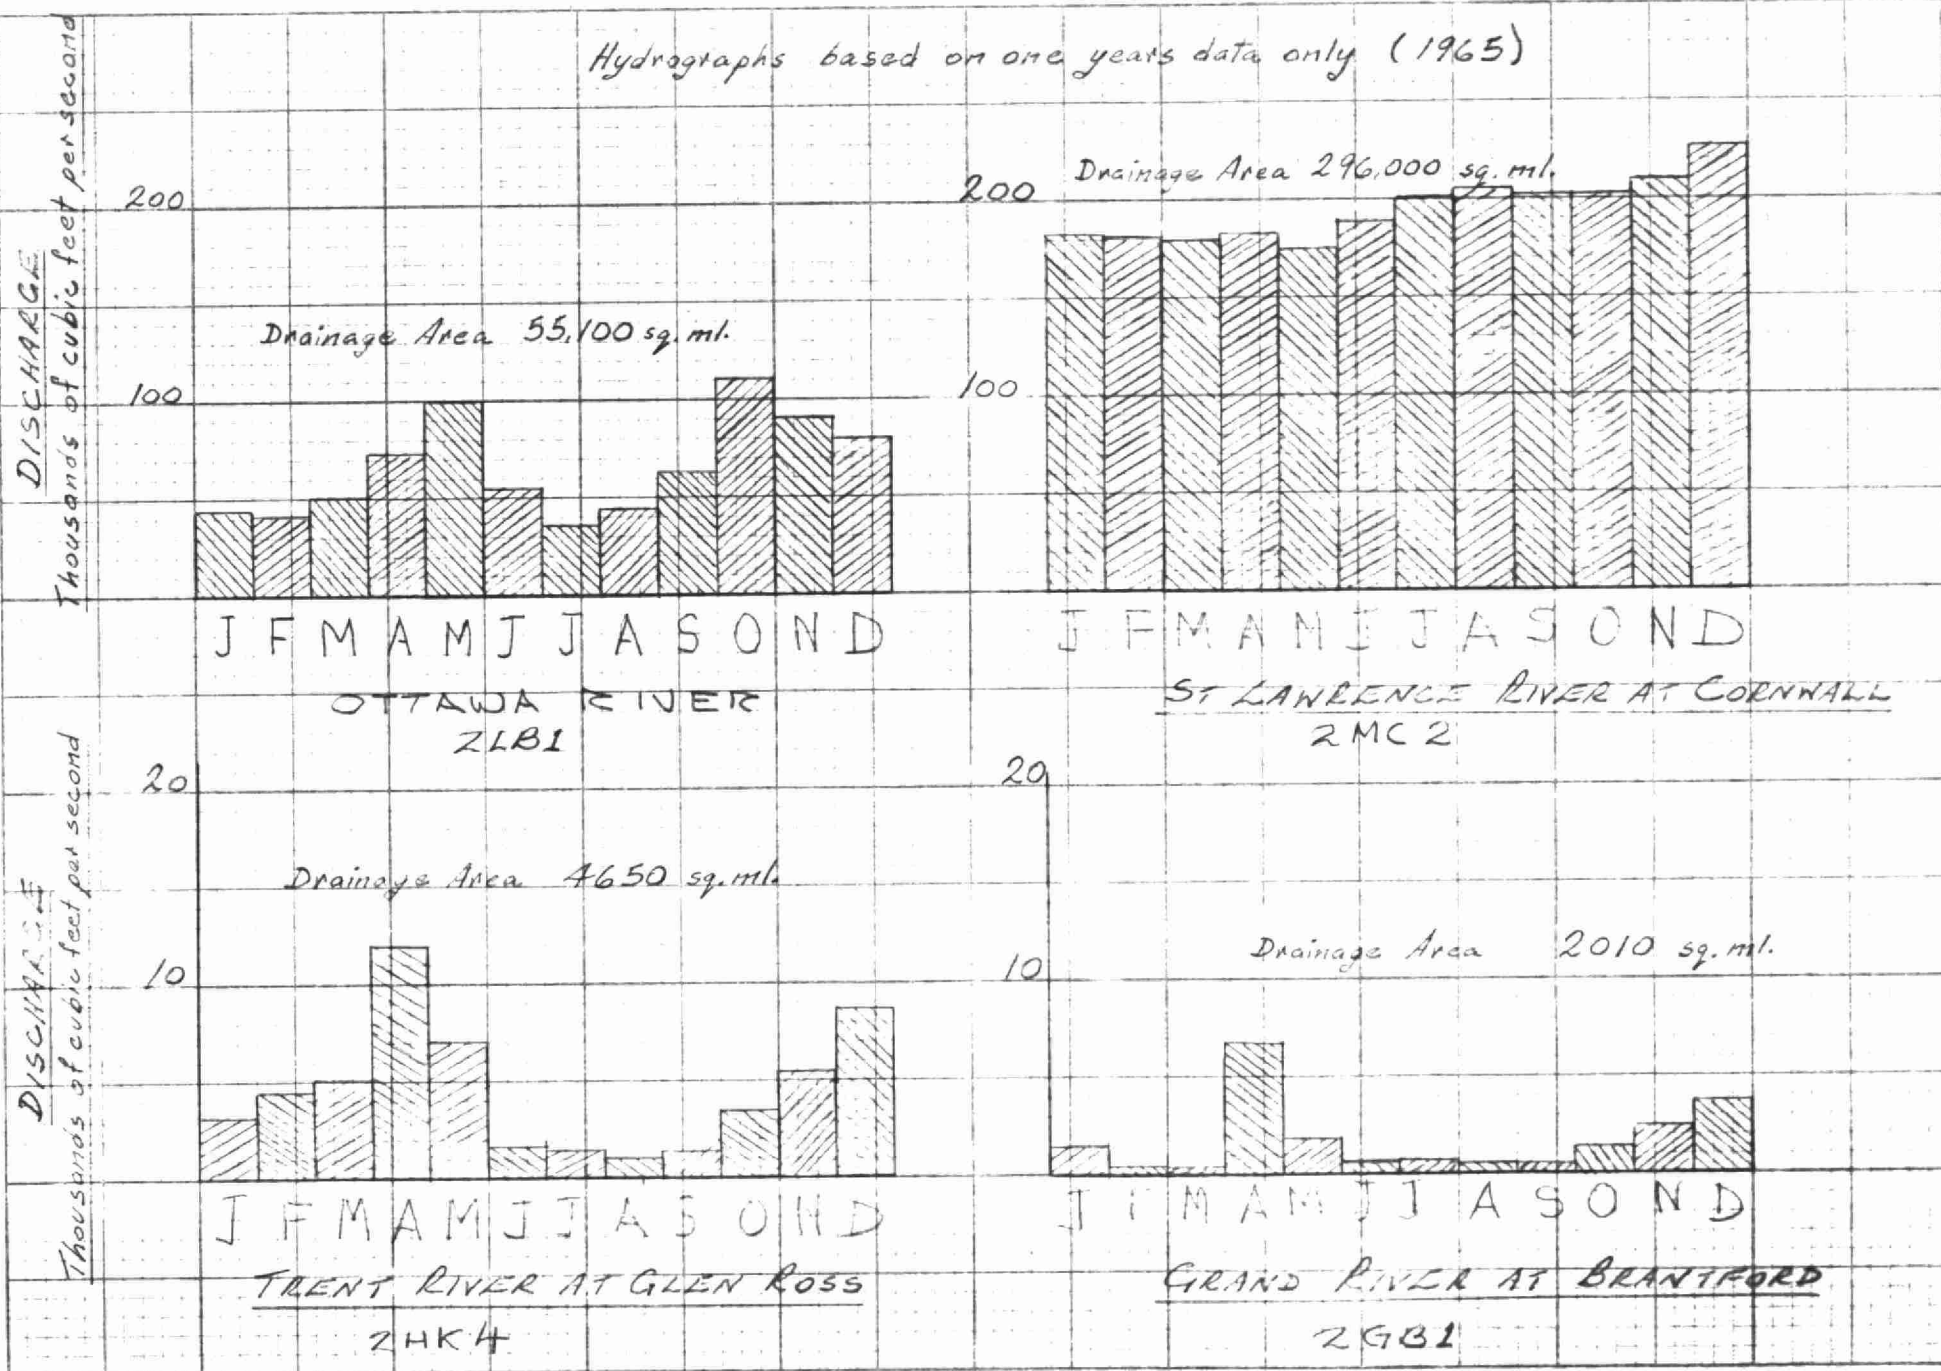 Hydrographs based on one years data only (1965)
DISCHARGE
Thousands of cubic feet per second
200
100
Drainage Area 55,100 sq. ml.
J F M A M J J A S O N D
OTTAWA RIVER
2LB1
200
100
Drainage Area 296,000 sq. ml.
J F M A M J J A S O N D
ST LAWRENCE RIVER AT CORNWALL
2MC2
DISCHARGE
Thousands of cubic feet per second
20
10
Drainage Area 4650 sq. ml.
J F M A M J J A S O N D
TRENT RIVER AT GLEN ROSS
2HK4
20
10
Drainage Area 2010 sq. ml.
J F M A M J J A S O N D
GRAND RIVER AT BRANTFORD
2GB1